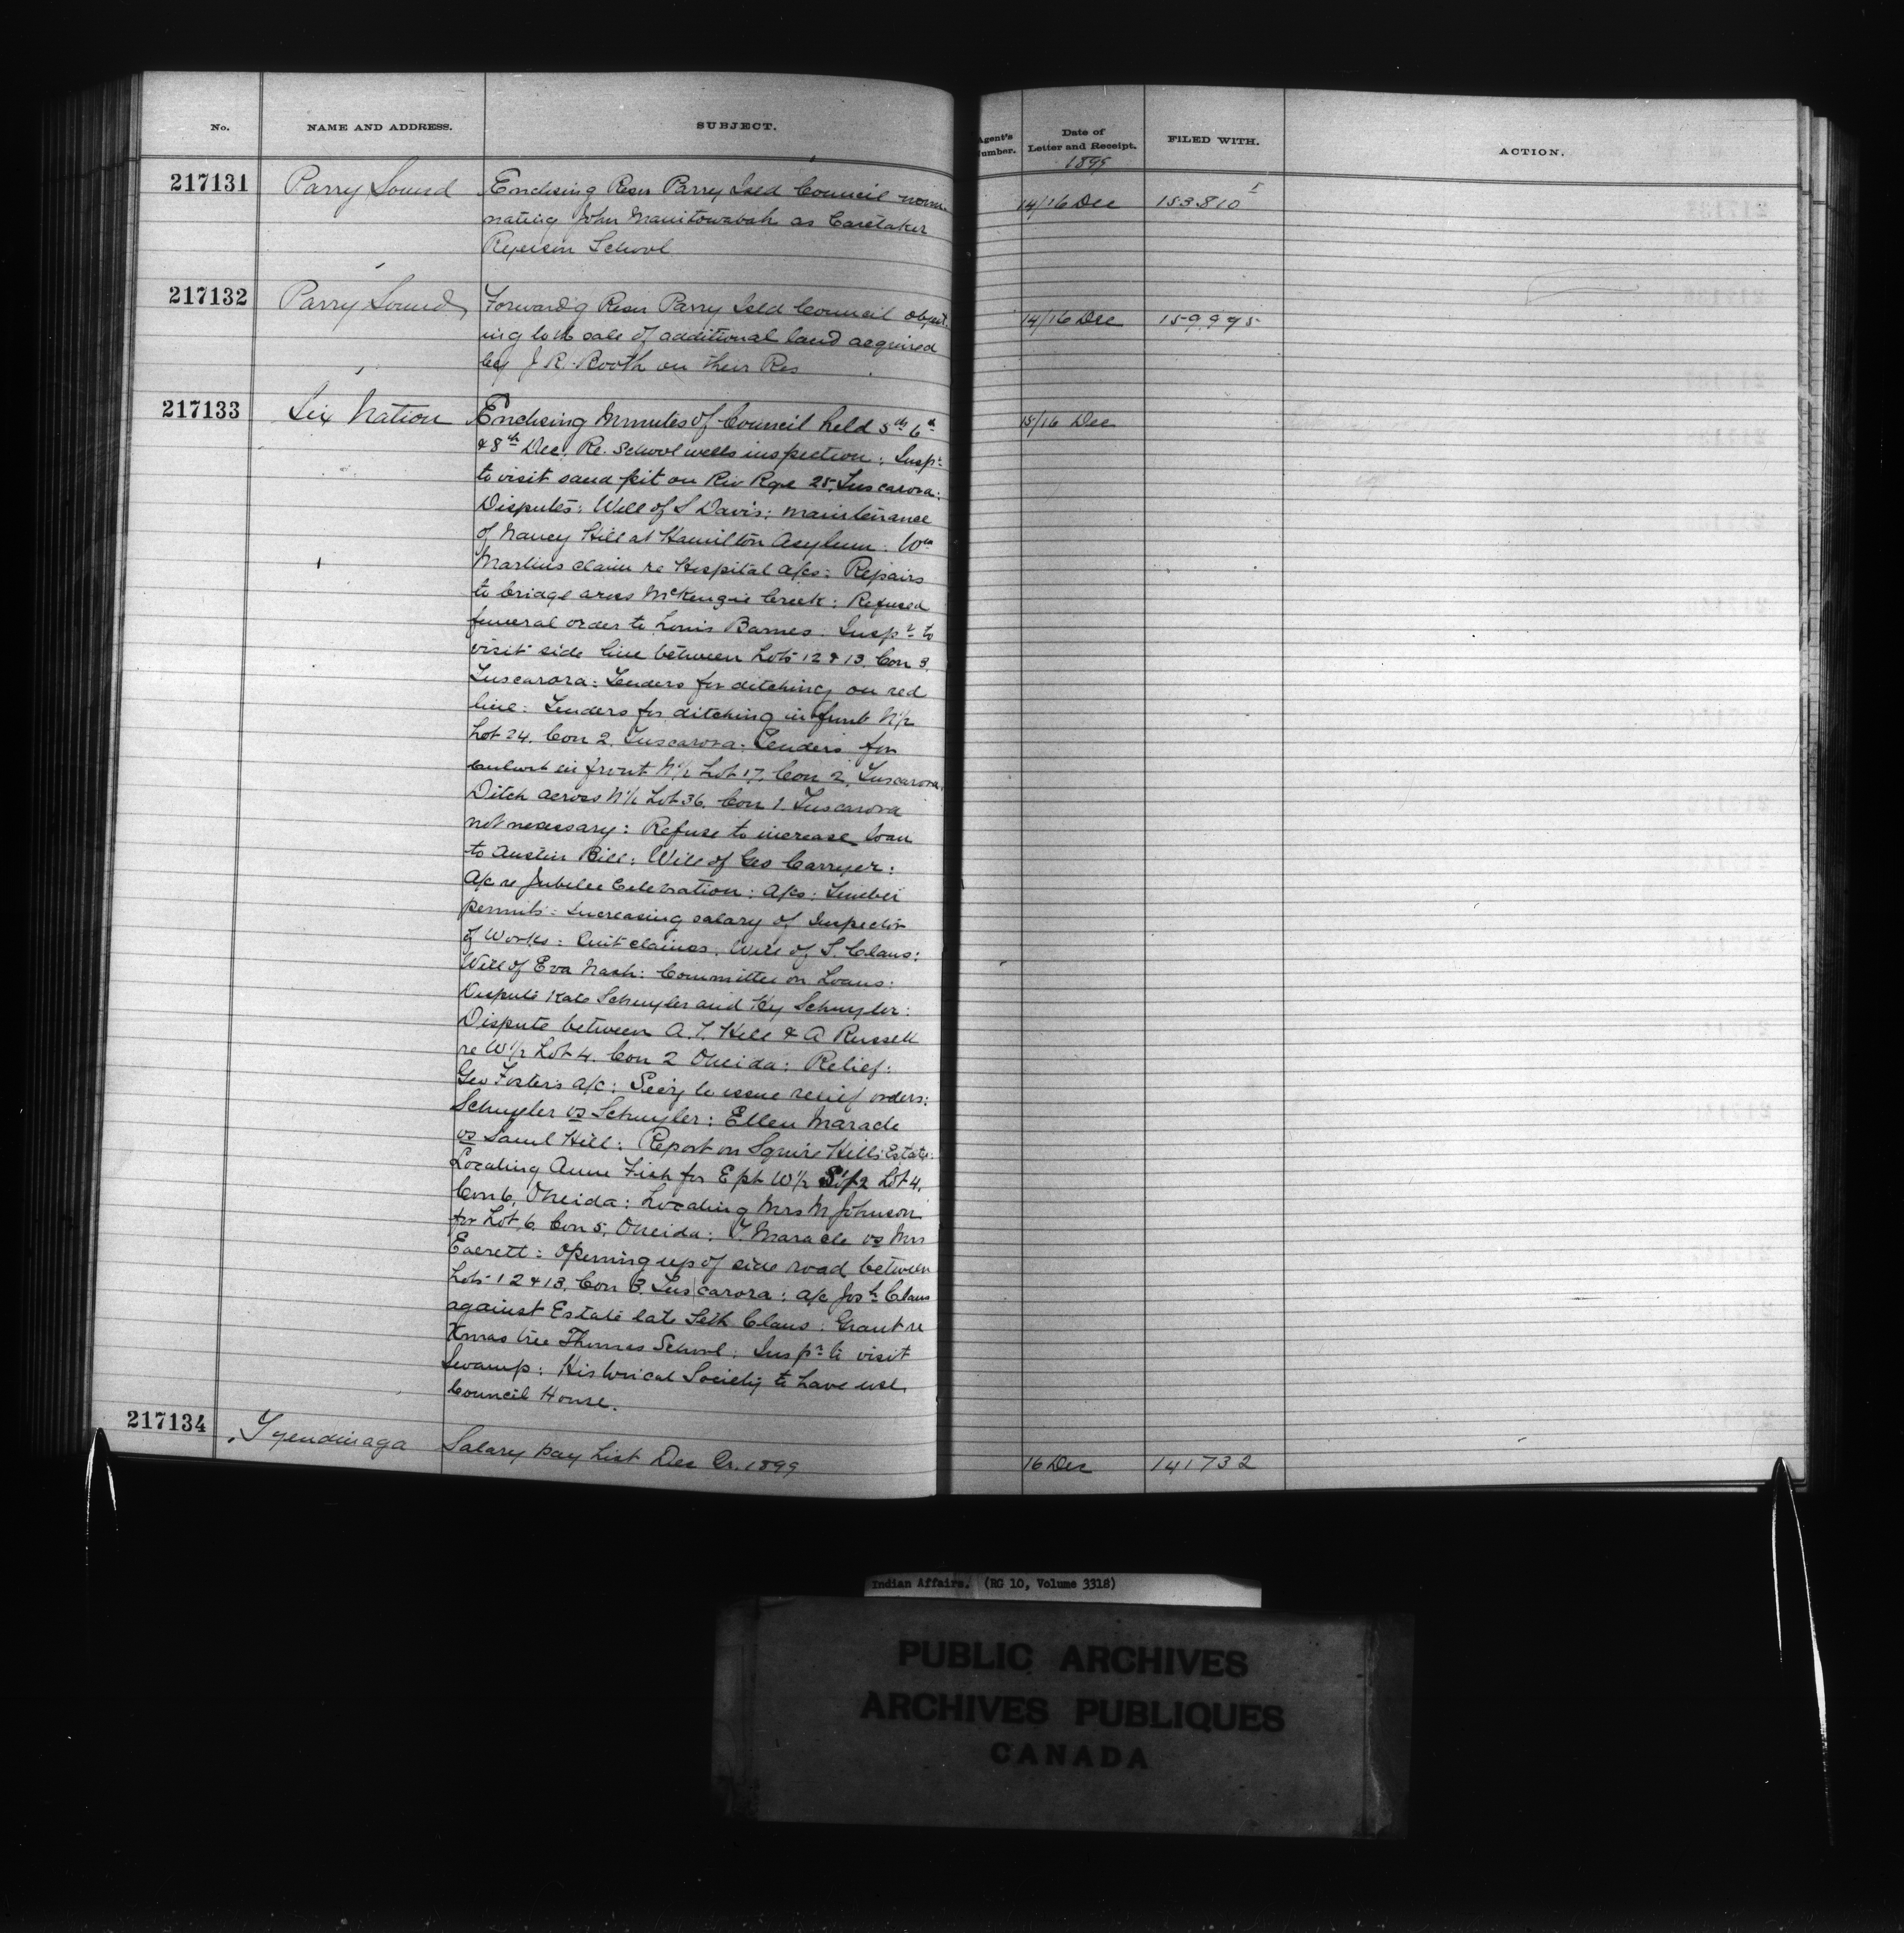 No. NAME AND ADDRESS. SUBJECT. Agent's Number. Date of Letter and Receipt. FILED WITH. ACTION.
1899
217131 Parry Sound Enclosing Resn Parry Isld Council nomi- 14/16 Dec 153.810
nating John Manitowabah as Caretaker
Ryerson School
217132 Parry Sound Forward'g Resn Parry Isld Council object- 14/16 Dec 159,995
ing to the sale of additional land acquired
by J. R. Booth on their Res
217133 Six Nation Enclosing Minutes of Council held 5th 6th 15/16 Dec
& 8th Dec. Re. School wells inspection: Inspr
to visit sand pit on Riv Rge 25, Tuscarora:
Disputes: Will of S Davis: maintenance
of Nancy Hill at Hamilton Asylum: Wm
Martins claim re Hospital a/cs: Repairs
to bridge across McKenzie Creek: Refused
funeral order to Louis Barnes. Inspr to
visit side line between Lots 12 & 13, Con 3,
Tuscarora: Tenders for ditching on red
line: Tenders for ditching in front N½
Lot 24, Con 2, Tuscarora: Tenders for
culvert in front N½ Lot 17, Con 2, Tuscarora.
Ditch across N½ Lot 36, Con 1, Tuscarora
not necessary: Refuse to increase loan
to Austin Bill: Will of Geo Carryer:
A/c re Jubilee Celebration: A/cs: Timber
permits: Increasing salary of Inspector
of Works: Quit claims. Will of S. Claus:
Will of Eva Nash: Committee on Loans:
Dispute Kate Schuyler and Hy Schuyler:
Dispute between A. T. Hill & A Russell
re W½ Lot 4, Con 2 Oneida: Relief:
Geo Fosters a/c: Secy to issue relief orders:
Schuyler vs Schuyler: Ellen Maracle
vs Saml Hill: Report on Squire Hills Estate:
Locating Anne Fish for E pt W½ S½ Lot 4,
Con 6, Oneida: Locating Mrs M Johnson
for Lot 6, Con 5, Oneida: T. Maracle vs Mrs
Everett: Opening up of side road between
Lots 12 & 13, Con 3, Tuscarora: a/c Josh Claus
against Estate late Seth Claus: Grant re
Xmas tree Thomas School: Inspr to visit
Swamp: Historical Society to have use
Council House.
217134 Tyendinaga Salary pay List Dec Qr. 1899 16 Dec 141732
Indian Affairs. (RG 10, Volume 3318)
PUBLIC ARCHIVES
ARCHIVES PUBLIQUES
CANADA